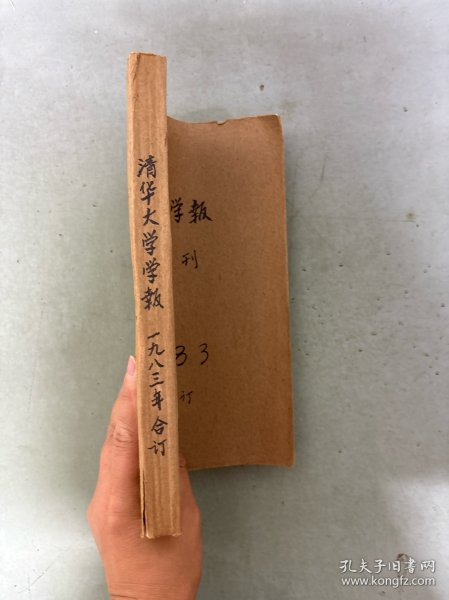 清华大学学報
一九八三年合订
学報
刊
83
订
孔夫子旧书网
www.kongfz.com